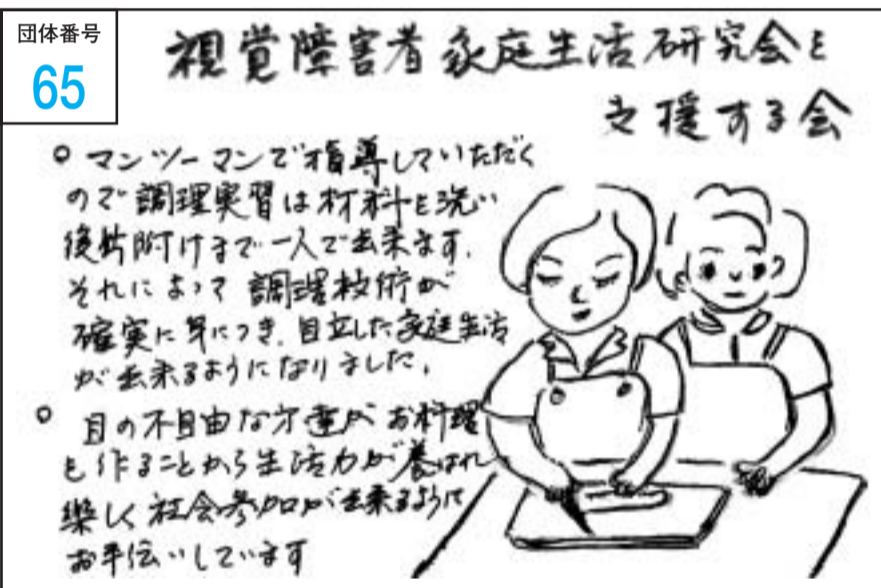 団体番号
65
視覚障害者家庭生活研究会を
支援する会
○ マンツーマンで指導していただく
ので調理実習は材料を洗い
後片附けまで一人で出来ます。
それによって調理技術が
確実に身につき、自立した家庭生活
が出来るようになりました。
○ 目の不自由な方達がお料理
を作ることから生活力が養はれ
楽しく社会参加が出来るように
お手伝いしています